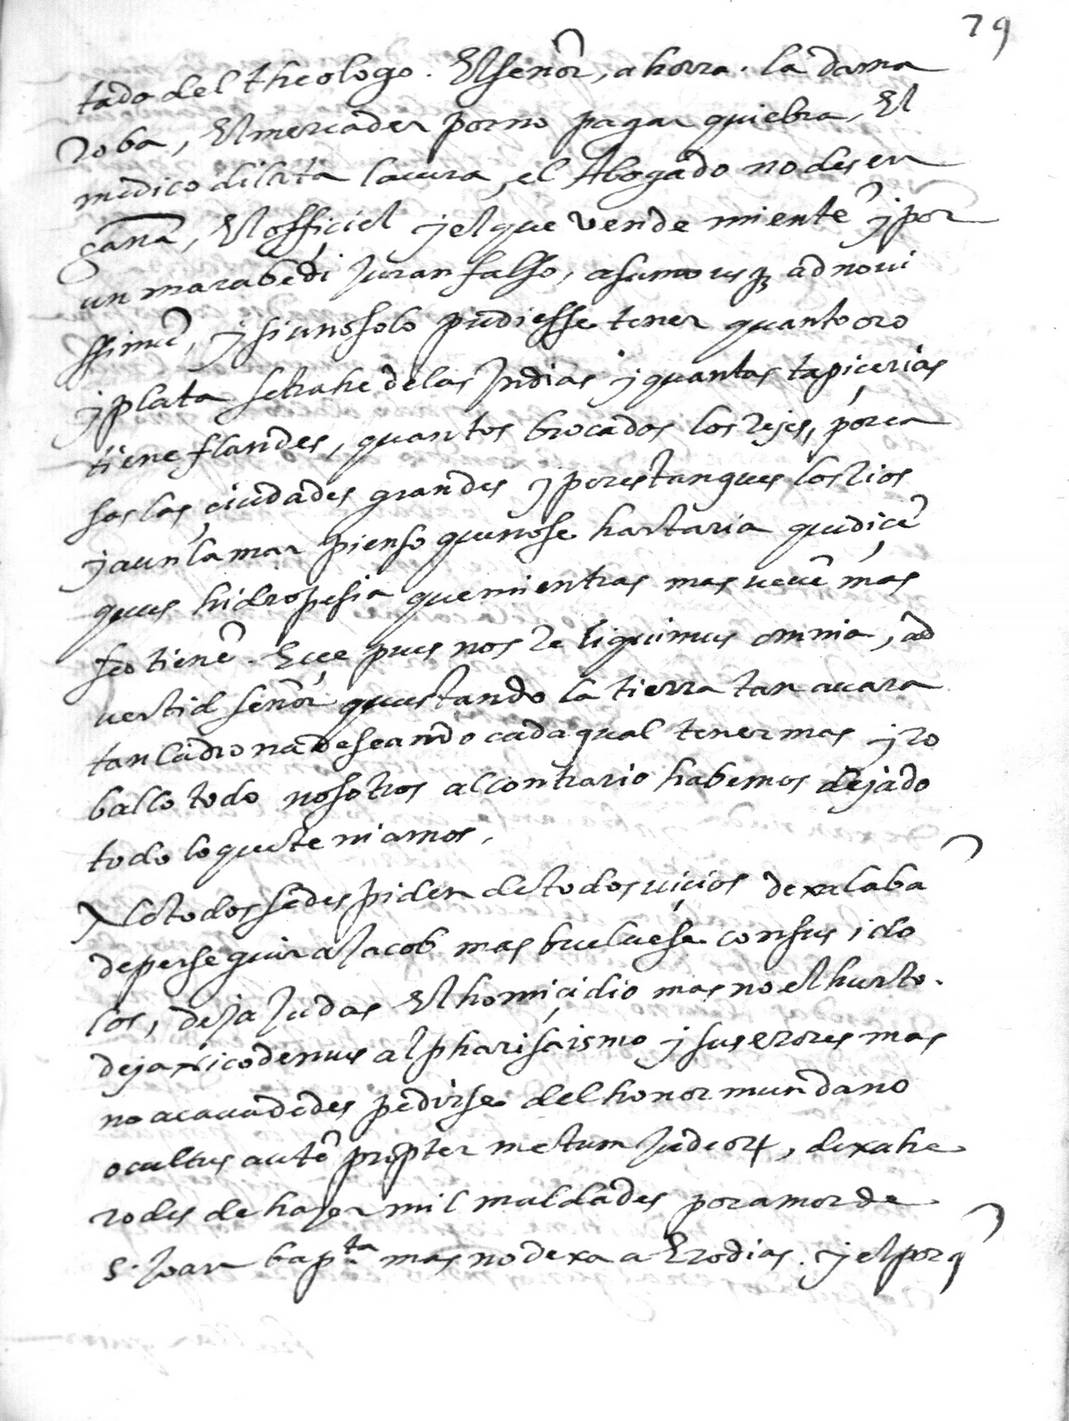 79
tado del theologo. El señor, ahorra. la dama
roba, El mercader por no pagar quiebra, El
medico dilata la cura, el Abogado no desen
gaña, El official y el que vende miente y por
un marabedi juran falso, a sumo usqʒ ad noui
ssimũ, y si uno solo pudiesse tener quanto oro
y plata se trahe de las Indias y quantas tapiçerias
tiene flandes, quantos brocados los reyes, por ca
sas las çiudades grandes y por estanques los rios
y aun la mar pienso que no se hartaria qud diçe
que es hidropesia que mientras mas veue mas
sed tiene. Ecçe pues nos reliquimus omnia, ad
vertid señor que estando la tierra tan auara
tan ladrona deseando cada qual tener mas y ro
ballo todo nosotros al contrario habemos dejado
todo lo que teniamos.
No todos se despiden de todos uiçios dexa laba
de perseguir a Jacob mas bueluese con sus ido
los, deja Judas El homiçidio mas no el hurto.
deja Nicodemus al pharisaismo y sus errores mas
no acaua de despedirse del honor mundano
ocultus autẽ propter metum Judeoꝝ, dexa he
rodes de haser mil maldades por amor de
S. Joan bap.ta mas no dexa a Erodias. y el porq̃